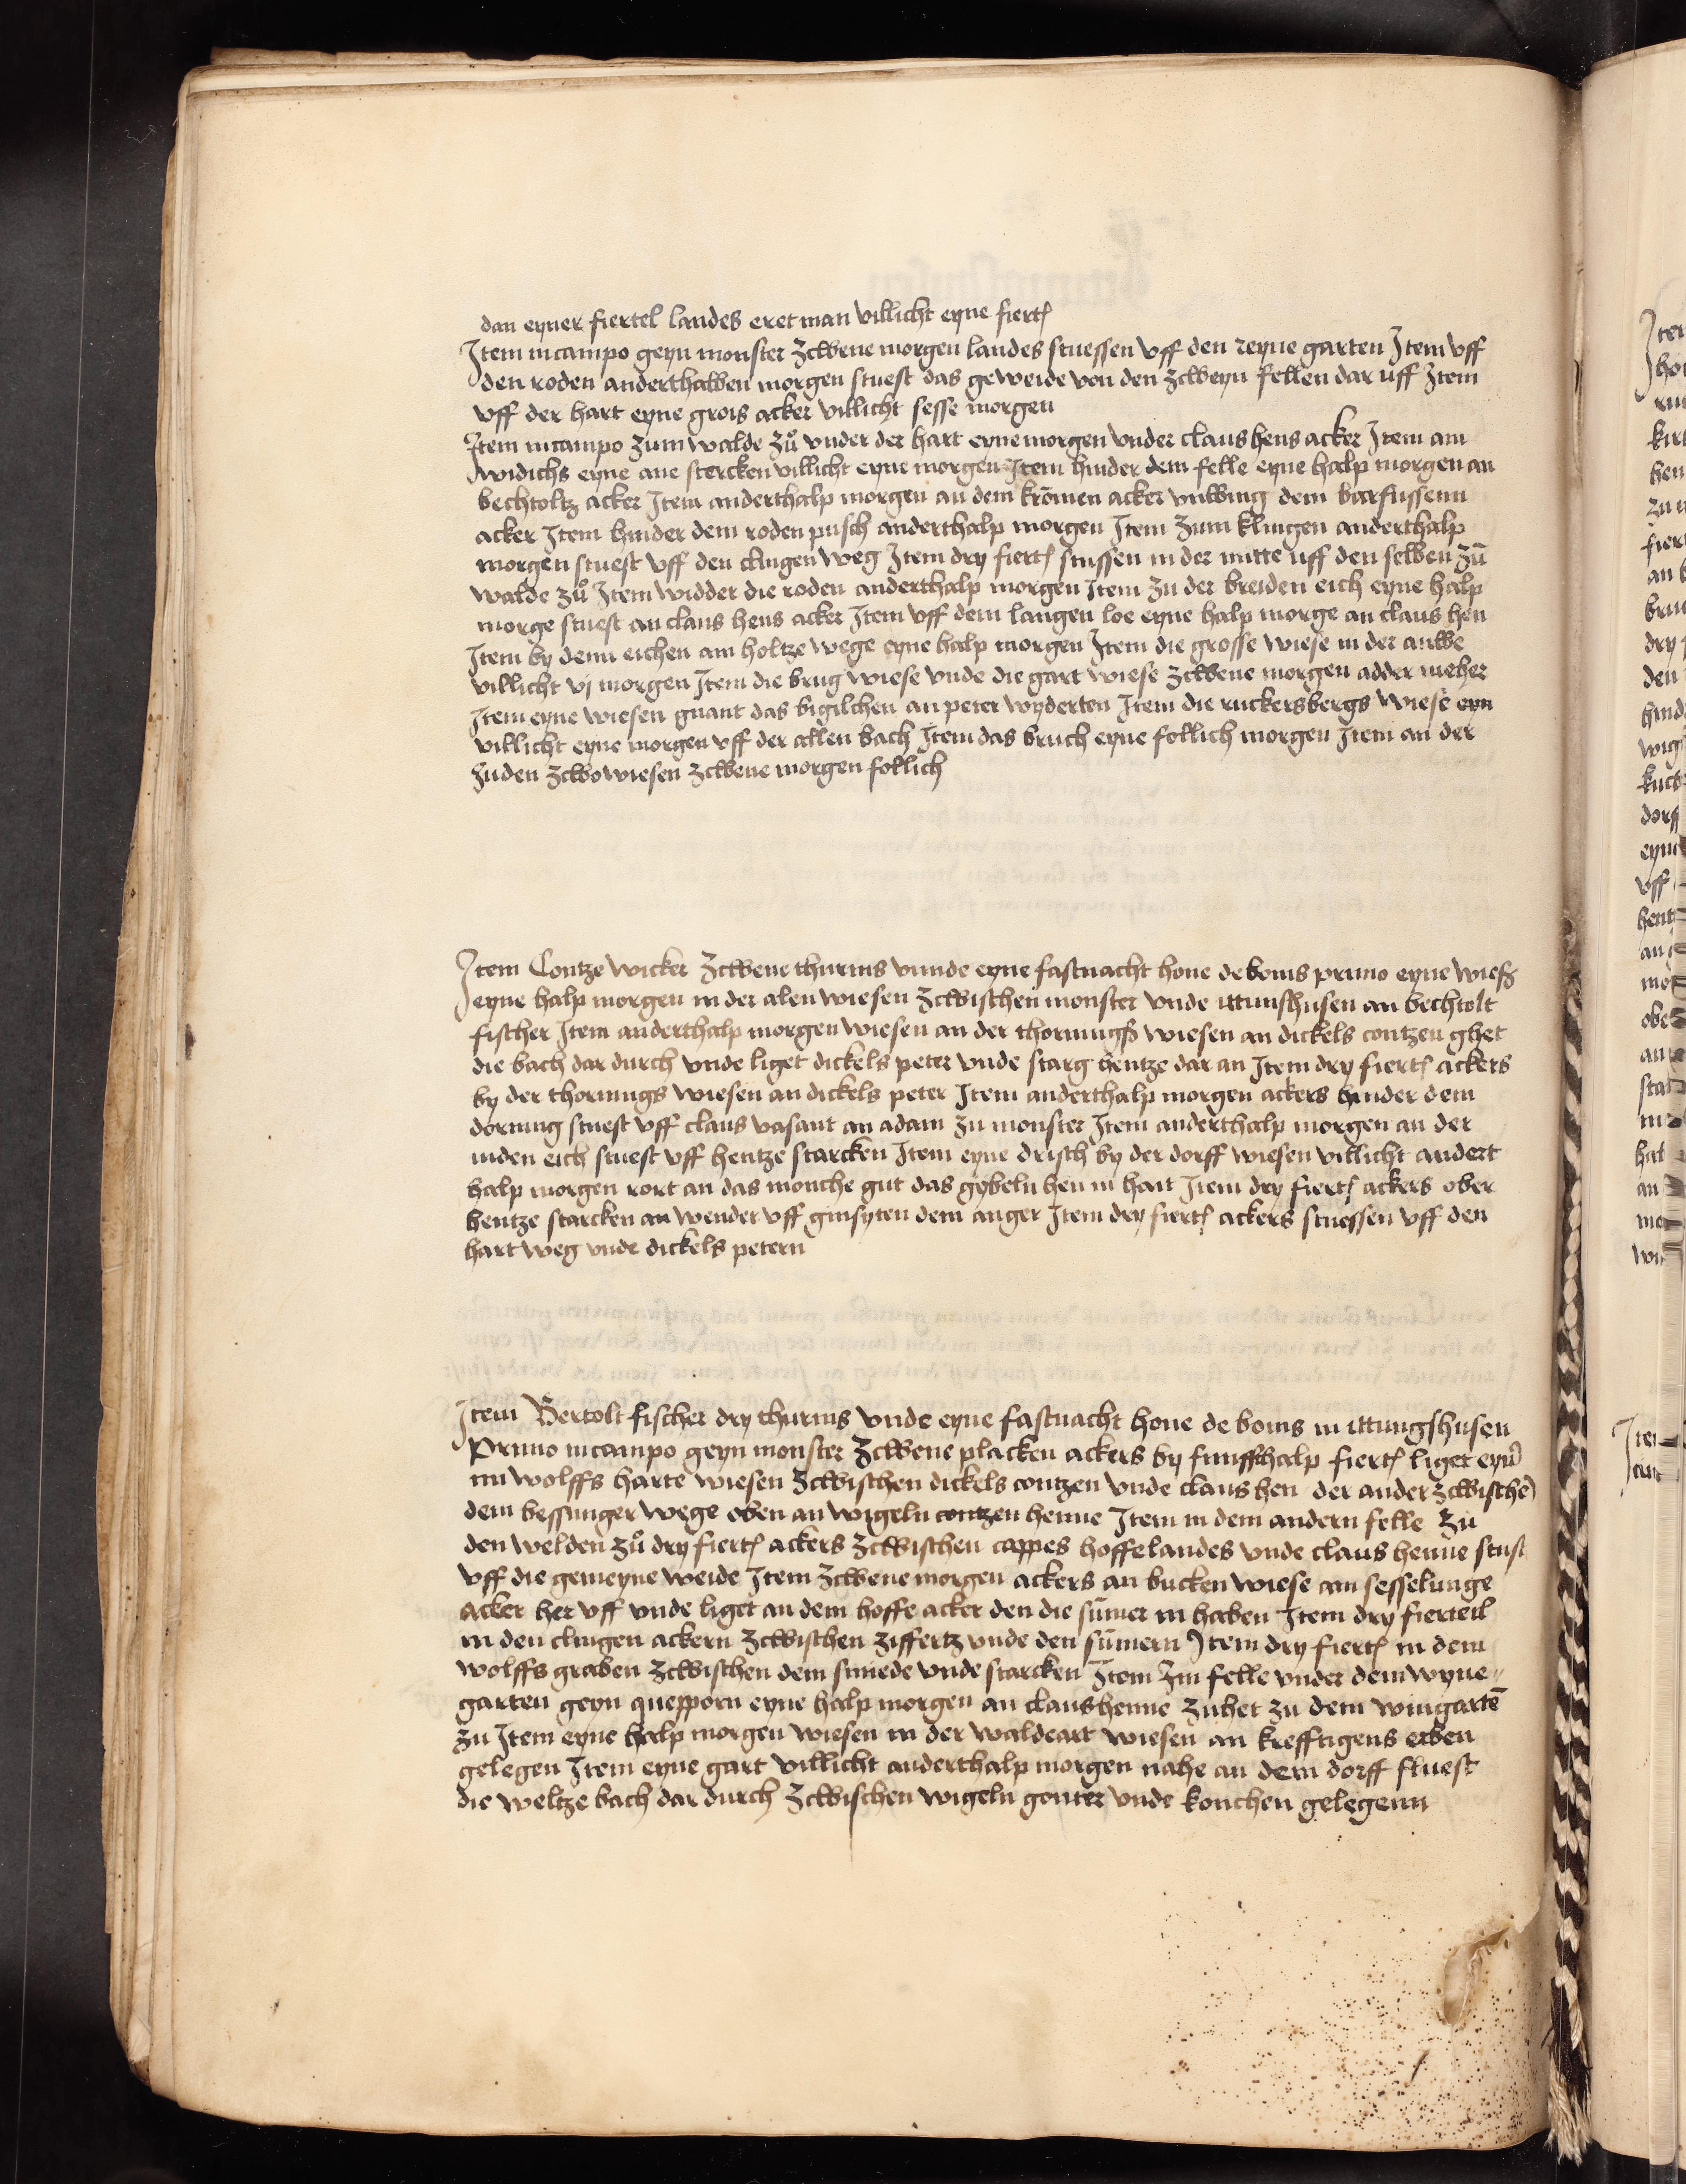 dan eyner fiertel landes eret man villicht eyne fiert
Item in campo geyn monster zcwene morgen landes stuessen vff den reyne garten Item vff
den roden anderthalben morgen stuest das geweide von den zcweyn fellen dar uff Item
vff der hart eyne grois acker villicht sesse morgen
Item in campo zum walde zů vnder der hart eyne morgen vnder claus hens acker Item am
widichs eyne ane stercken villicht eyne morgen Item hinder dem felle eyne halp morgen an
bechtoltz acker Item anderthalp morgen an dem krōmen acker dem barfussenn
acker Item hinder dem roden pusch anderthalp morgen Item zum klingen anderthalp
morgen stuest vff den clingen weg Item dry fiert stussen in der mitte uff den selben zū
walde zů Item widder die roden anderthalp morgen Item zu der breiden eich eyne halp
morge stuest an claus hens acker Item vff dem langen loe eyne halp morge an claus hen
Item by denn eichen am holtze wege eyne halp morgen Item die grosse wiese in der auwe
villicht vj morgen Item die brug wiese vnde die gart wiese zcwene morgen adder meher
Item eyne wiesen gnant das bigilchen an peter wyderten Item die ruckersbergs wiese eyn
villicht eyne morgen vff der allen bach Item das bruch eyne follich morgen Item an der
huden zcwo wiesen zcwene morgen follich
Item Contze wicker zcwene thurnis vnnde eyne fastnacht hone de bonis primo eyne wieß
eyne halp morgen in der alen wiesen zcwischen monster vnde ittinshusen an bechtolt
fischer Item anderthalp morgen wiesen an der thornungß wiesen an dickels contzen ghet
die bach dar durch vnde liget dickels peter vnde starg hentze dar an Item dry fiert ackers
by der thornungs wiesen an dickels peter Item anderthalp morgen ackers hinder dem
dornung stuest vff claus vasant an adam zu monster Item anderthalp morgen an der
inden eich stuest vff hentze starcken Item eyne drisch by der dorff wiesen villicht andert
halp morgen rort an das monche gut das gybeln hen in hait Item dry fiert ackers ober
hentze starcken an wendet vff ginsyten dem anger Item dry fiert ackers stuessen vff den
hart weg vnde dickels petern
Item Bertolt fischer dry thurnis vnde eyne fastnacht hone de bonis in ittungshusen
Primo in campo geyn monster zcwene placken ackers by funffthalp fiert liget eyn
im wolffs harte wiesen zcwischen dickels contzen vnde claus hen der ander zcwischē
dem bessinger wege oben an wigeln contzen henne Item in dem andern felle zu
den welden zů dry fiert ackers zcwischen cappes hoffelandes vnde claus henne stust
vff die gemeyne weide Item zcwene morgen ackers an bucken wiese am sesselunge
acker her vff vnde liget an dem hoffe acker den die sūmer in haben Item dry fierteil
in den clingen ackern zcwischen ziffertz vnde den sūmern Item dry fiert in dem
wolffs graben zcwischen dem smede vnde starcken Item Im felle vnder dem wyne
garten geyn quepporn eyne halp morgen an claushenne zuhet zu dem wingartē
zu Item eyne halp morgen wiesen in der waldeart wiesen an krefftigens erben
gelegen Item eyne gart villicht anderthalp morgen nahe an dem dorff fluest
die weltze bach dar durch zcwischen wigeln gonter vnde konchen gelegenn